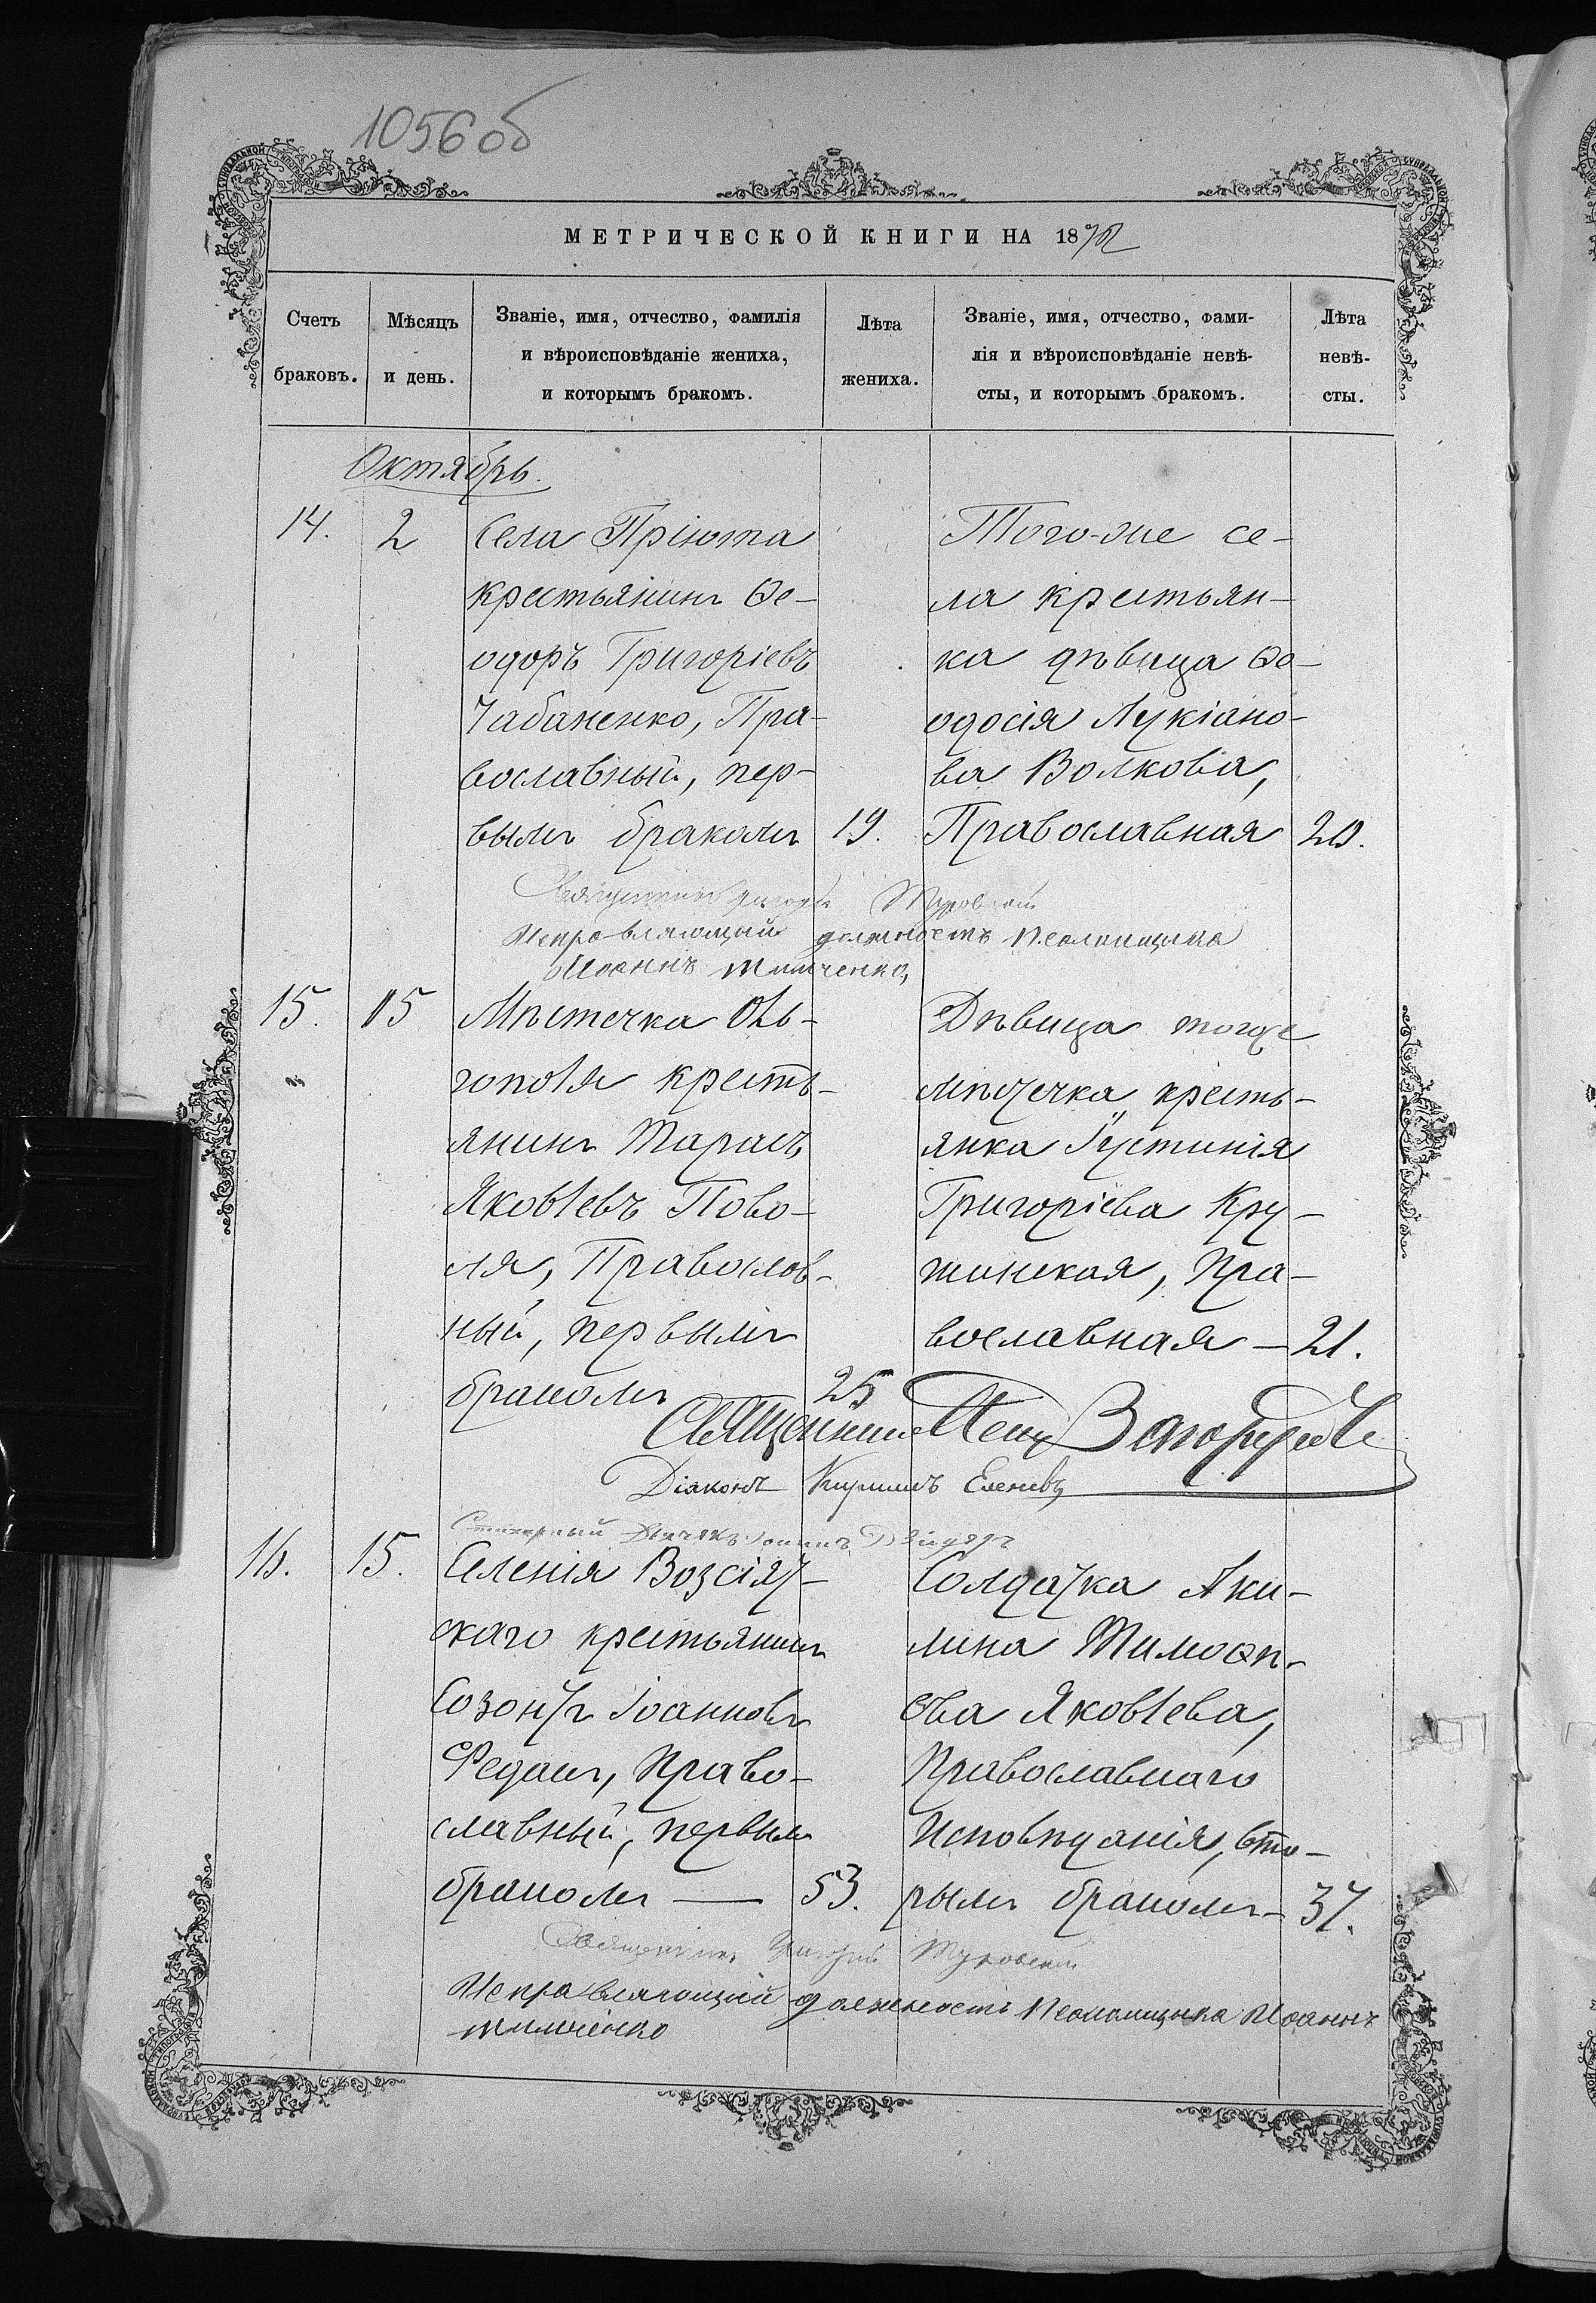 1056об
МЕТРИЧЕСКОЙ КНИГИ НА 18
Счетъ браковъ.
Мѣсяцъ и день.
Званіе, имя, отчество, фамилія
и вѣроисповѣданіе жениха,
и которымъ бракомъ.
Лѣта жениха.
Званіе, имя, отчество, фами-
лія и вѣроисповѣданіе невѣ-
сты, и которымъ бракомъ.
Лѣта невѣ-
сты.
Октябрь.
14. 2
Села Пріюта
крестьянинъ Ѳе-
одоръ Григоріевъ
Чабаненко, Пра-
вославный, пер-
вымъ бракомъ 19.
Того-же се-
ла крестьян-
ка дѣвица Ѳе-
одосія Лукіано-
ва Волкова,
Православная 20.
Исправляющій должность Псаломщика
Іоаннъ
15. 15
Мѣстечка Оль-
гополя кресть-
янинъ Тарасъ
Яковлевъ Пово-
ля, Православ-
ный, первымъ
бракомъ 25
Дѣвица тогоже
мѣстечка кресть-
янка Іустинія
Григоріева Кру-
шинская, Пра-
вославная - 21.
Священникъ
Діаконъ Кириллъ
16. 15.
Селенія Возсіят-
скаго крестьянинъ
Созонтъ Іоанновъ
Федашъ, Право-
славный, первымъ
бракомъ — 53.
Солдатка Аки-
лина Тимоѳѣ-
ева Яковлева,
Православнаго
Исповѣданія, вто-
рымъ бракомъ - 37.
Исправляющій должность Псаломщика Іоаннъ